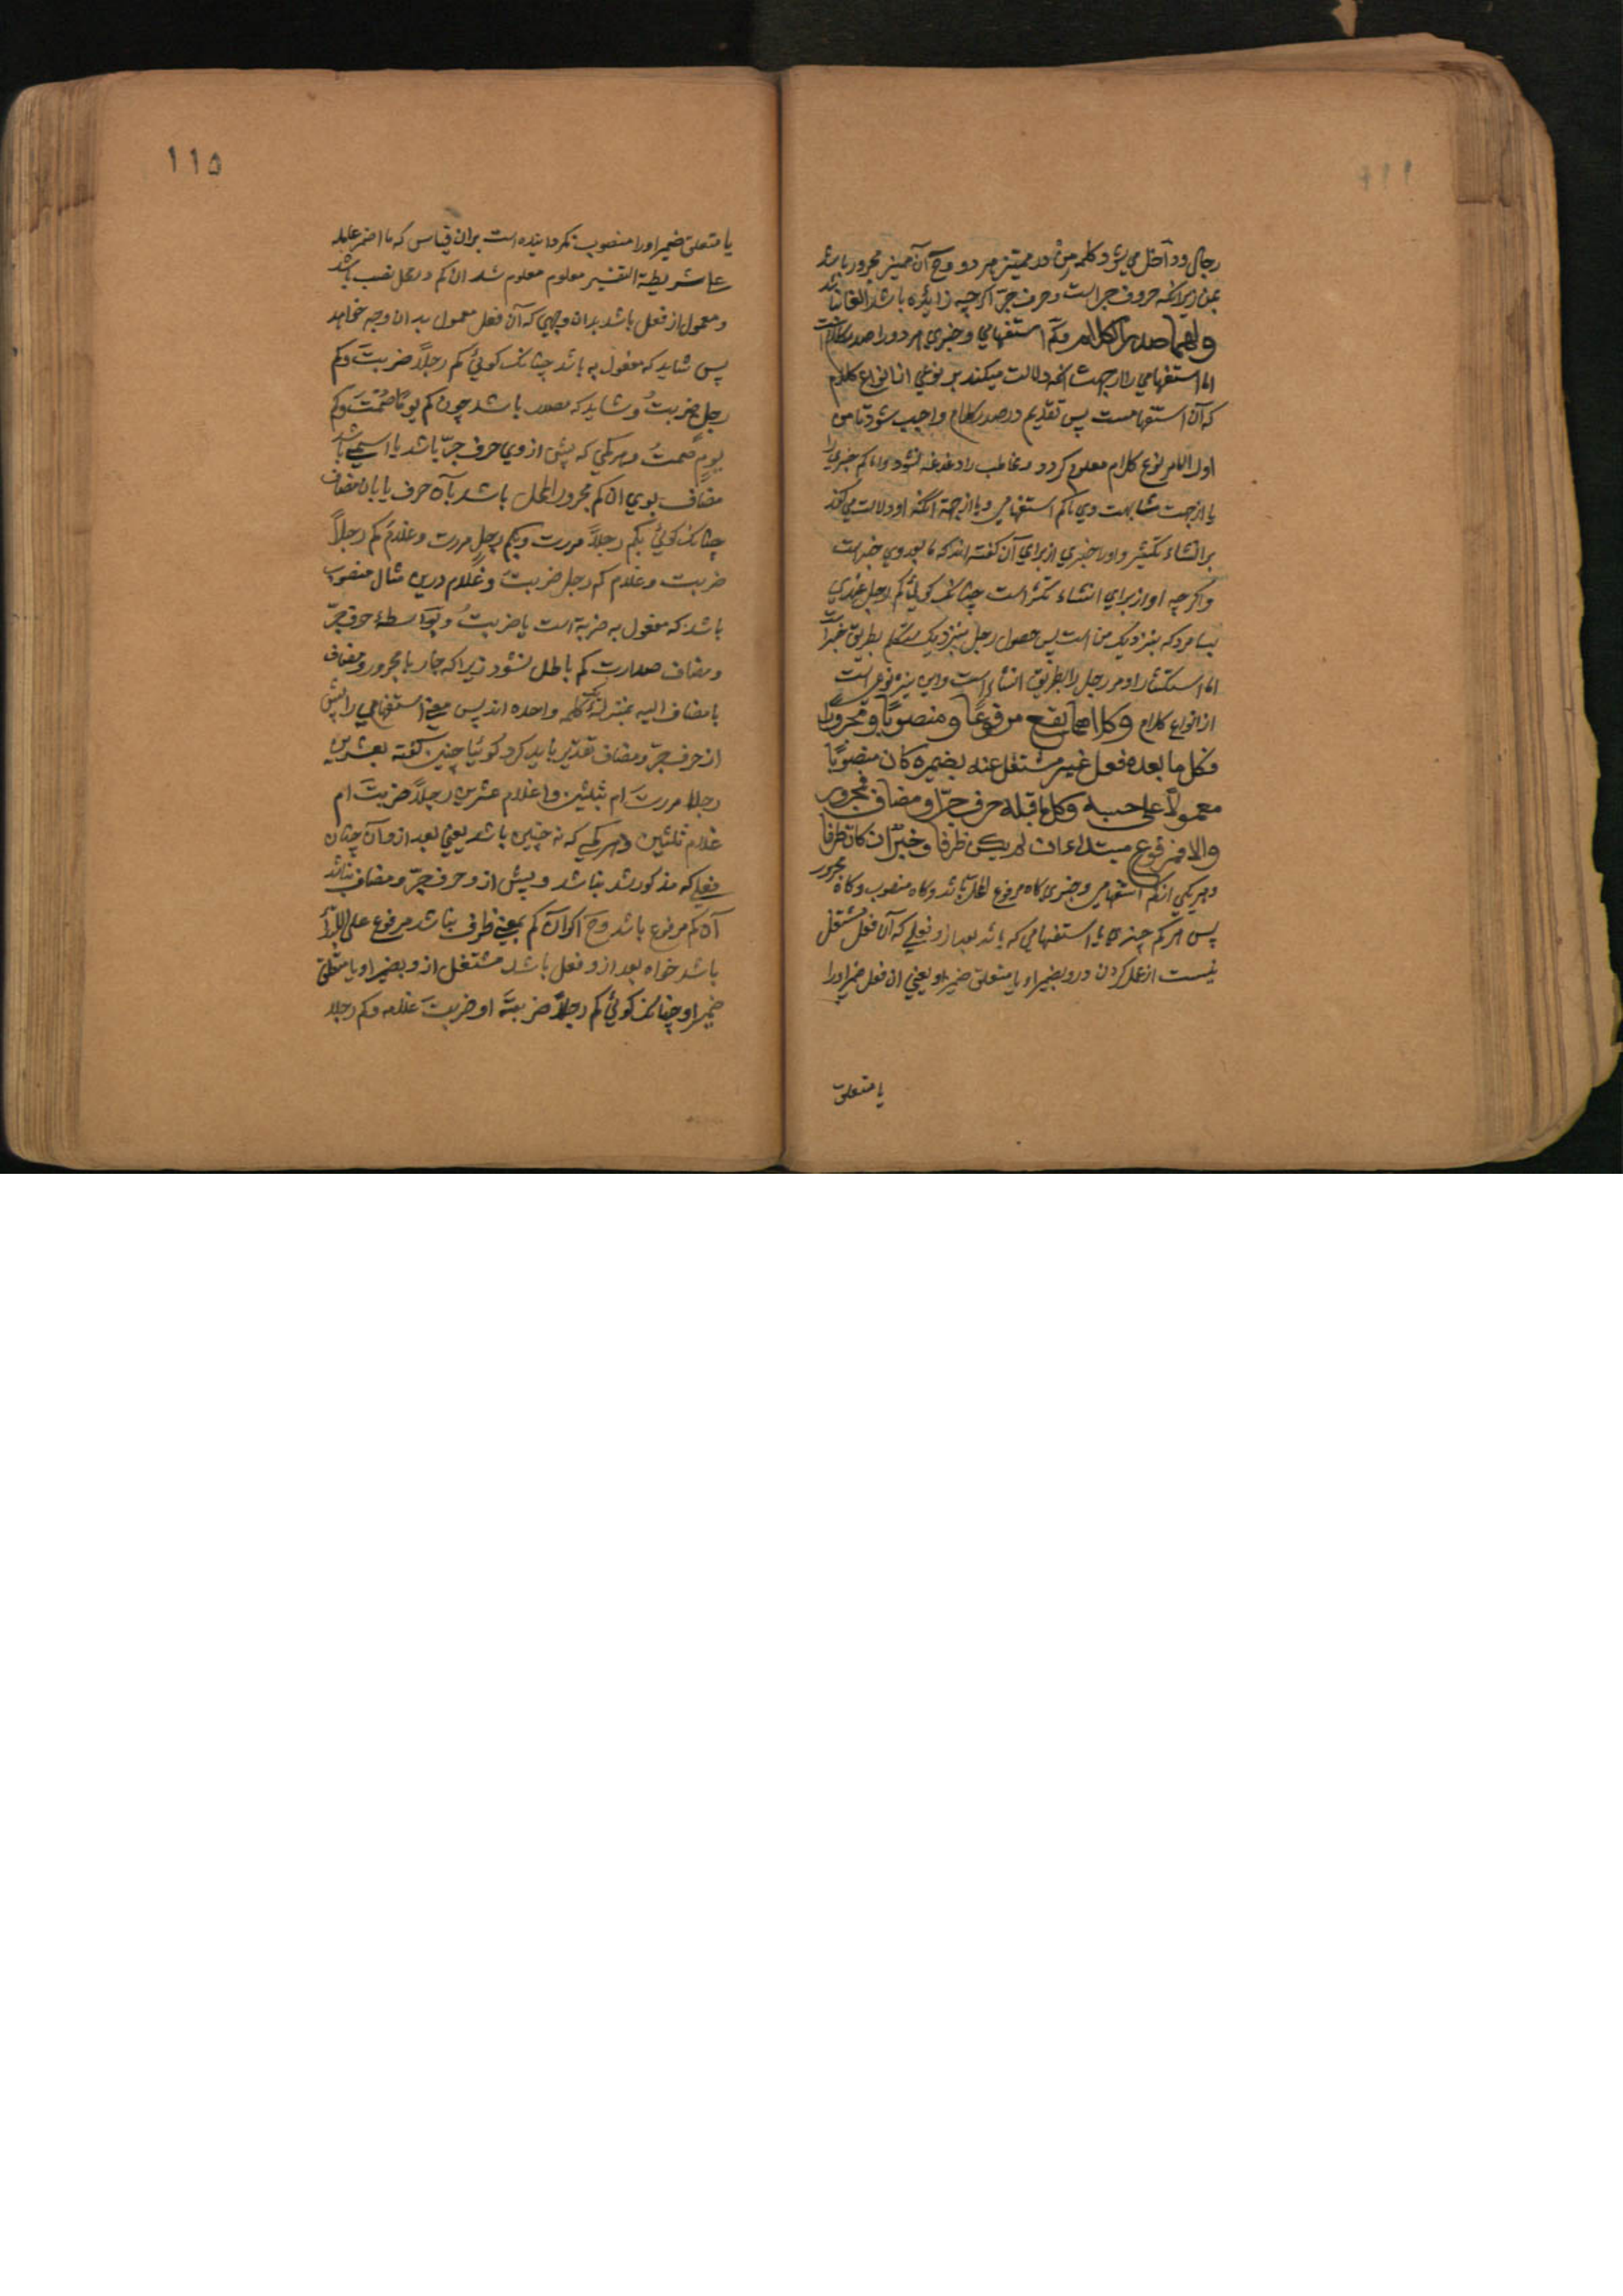 رجال و داخل می شود کلمه من در ممیز هر دو و ح آن ممیز مجرور باشد
بمن زیرانکه حروف جر است و حرف جر اکرچه زایده باشد
ولهما صدر الکلام و کم استفهامی و خبری هر دو را صدر کلام است
اما استفهامی را از جهت انکه دلالت میکند بر نوعی از انواع کلام
که آن استفهامست پس تقدیم در صدر کلام واجب شود تا من
اول الامر نوع کلام معلوم کردد و مخاطب را دغدغه نشود و اما کم خبری را
یا از جهت مشابهت وی با کم استفهامی و یا از جهة انکه او دلالت می کند
بر انشاء تکثیر و او را خبری از برای آن کفته اند که ما بعد وی خبر است
و اکرچه او از برای انشاء تکثر است چنانک کوئی کم رجل عندی
بسا مرد که بنزدیک من است پس حصول رجل بنزدیک متکلم بطریق خبر است
اما استکثار او مر رجل را بطریق انشا است و این نیز نوعی است
از انواع کلام وکلاهما یقع مرفوعًا و منصوبًا و مجرورًا
فکل ما بعده فعل غیر مشتغل عنه بضمیره کان منصوبًا
معمولًا علی حسبه وکل ما قبله حرف جرّ او مضاف فمجرور
والا فمرفوع مبتداء ان لم یکن ظرفا و خبرٌ ان کان ظرفا
و هر یکی از کم استفهامی و خبری کاه مرفوع المحل باشد و کاه منصوب و کاه مجرور
پس هر کم خبری یا استفهامی که باشد بعد از و فعلی که آن فعل مشتغل
نیست از عمل کردن درو بضمیر او یا متعلق ضمیر او یعنی ان فعل ضمیر او را
یا متعلق
۱۱۵
یا متعلق ضمیر او را منصوب نکردانیده است بران قیاس که ما اضمر عامله
علی شریطة التفسیر معلوم معلوم شد ان کم در محل نصب باشد
و معمول از فعل باشد بدان وجهی که آن فعل معمول بدان وجه خواهد
پس شاید که مفعول به باشد چنانک کوئی کم رجلًا ضربتَ و کم
رجلٍ ضربتُ و شاید که مصدر باشد چون کم یومًا صُمْتَ و کم
یومٍ صمتُ و هر کمی که پیش از وی حرف جرّ باشد یا اسمی باشد
مضاف بوی ان کم مجرور المحل باشد بآن حرف یا بان مضاف
چنانک کوئی بکم رجلًا مررت و بکم رجلٍ مررت و غلامُ کم رجلًا
ضربت و غلام کم رجل ضربتُ و غلام درین مثال منصوب
باشد که مفعول به ضربة است یا ضربتُ و بواسطهٔ حرف جرّ
و مضاف صدارت کم باطل نشود زیرا که جار با مجرور و مضاف
با مضاف الیه بمنزلهٔ یک کلمه واحده اند پس معنی استفهامی را پیش
از حرف جرّ و مضاف تقدیر باید کرد کوئیا چنین کفته بعشرین
رجلا مررتَ ام بثلثین و اغلام عشرین رجلًا ضربتَ ام
غلام ثلثین و هر کمی که نه چنین باشد یعنی بعد از و آن چنان
فعلی که مذکور شد نباشد و پیش از و حرف جرّ و مضاف نباشد
آن کم مرفوع باشد و ح اکر آن کم بمعنی ظرف نباشد مرفوع علی الابتداء
باشد خواه بعد از و فعل باشد مشتغل از و بضمیر او یا متعلق
ضمیر او چنانک کوئی کم رجلًا ضربتَه او ضربتَ غلامه و کم رجلا